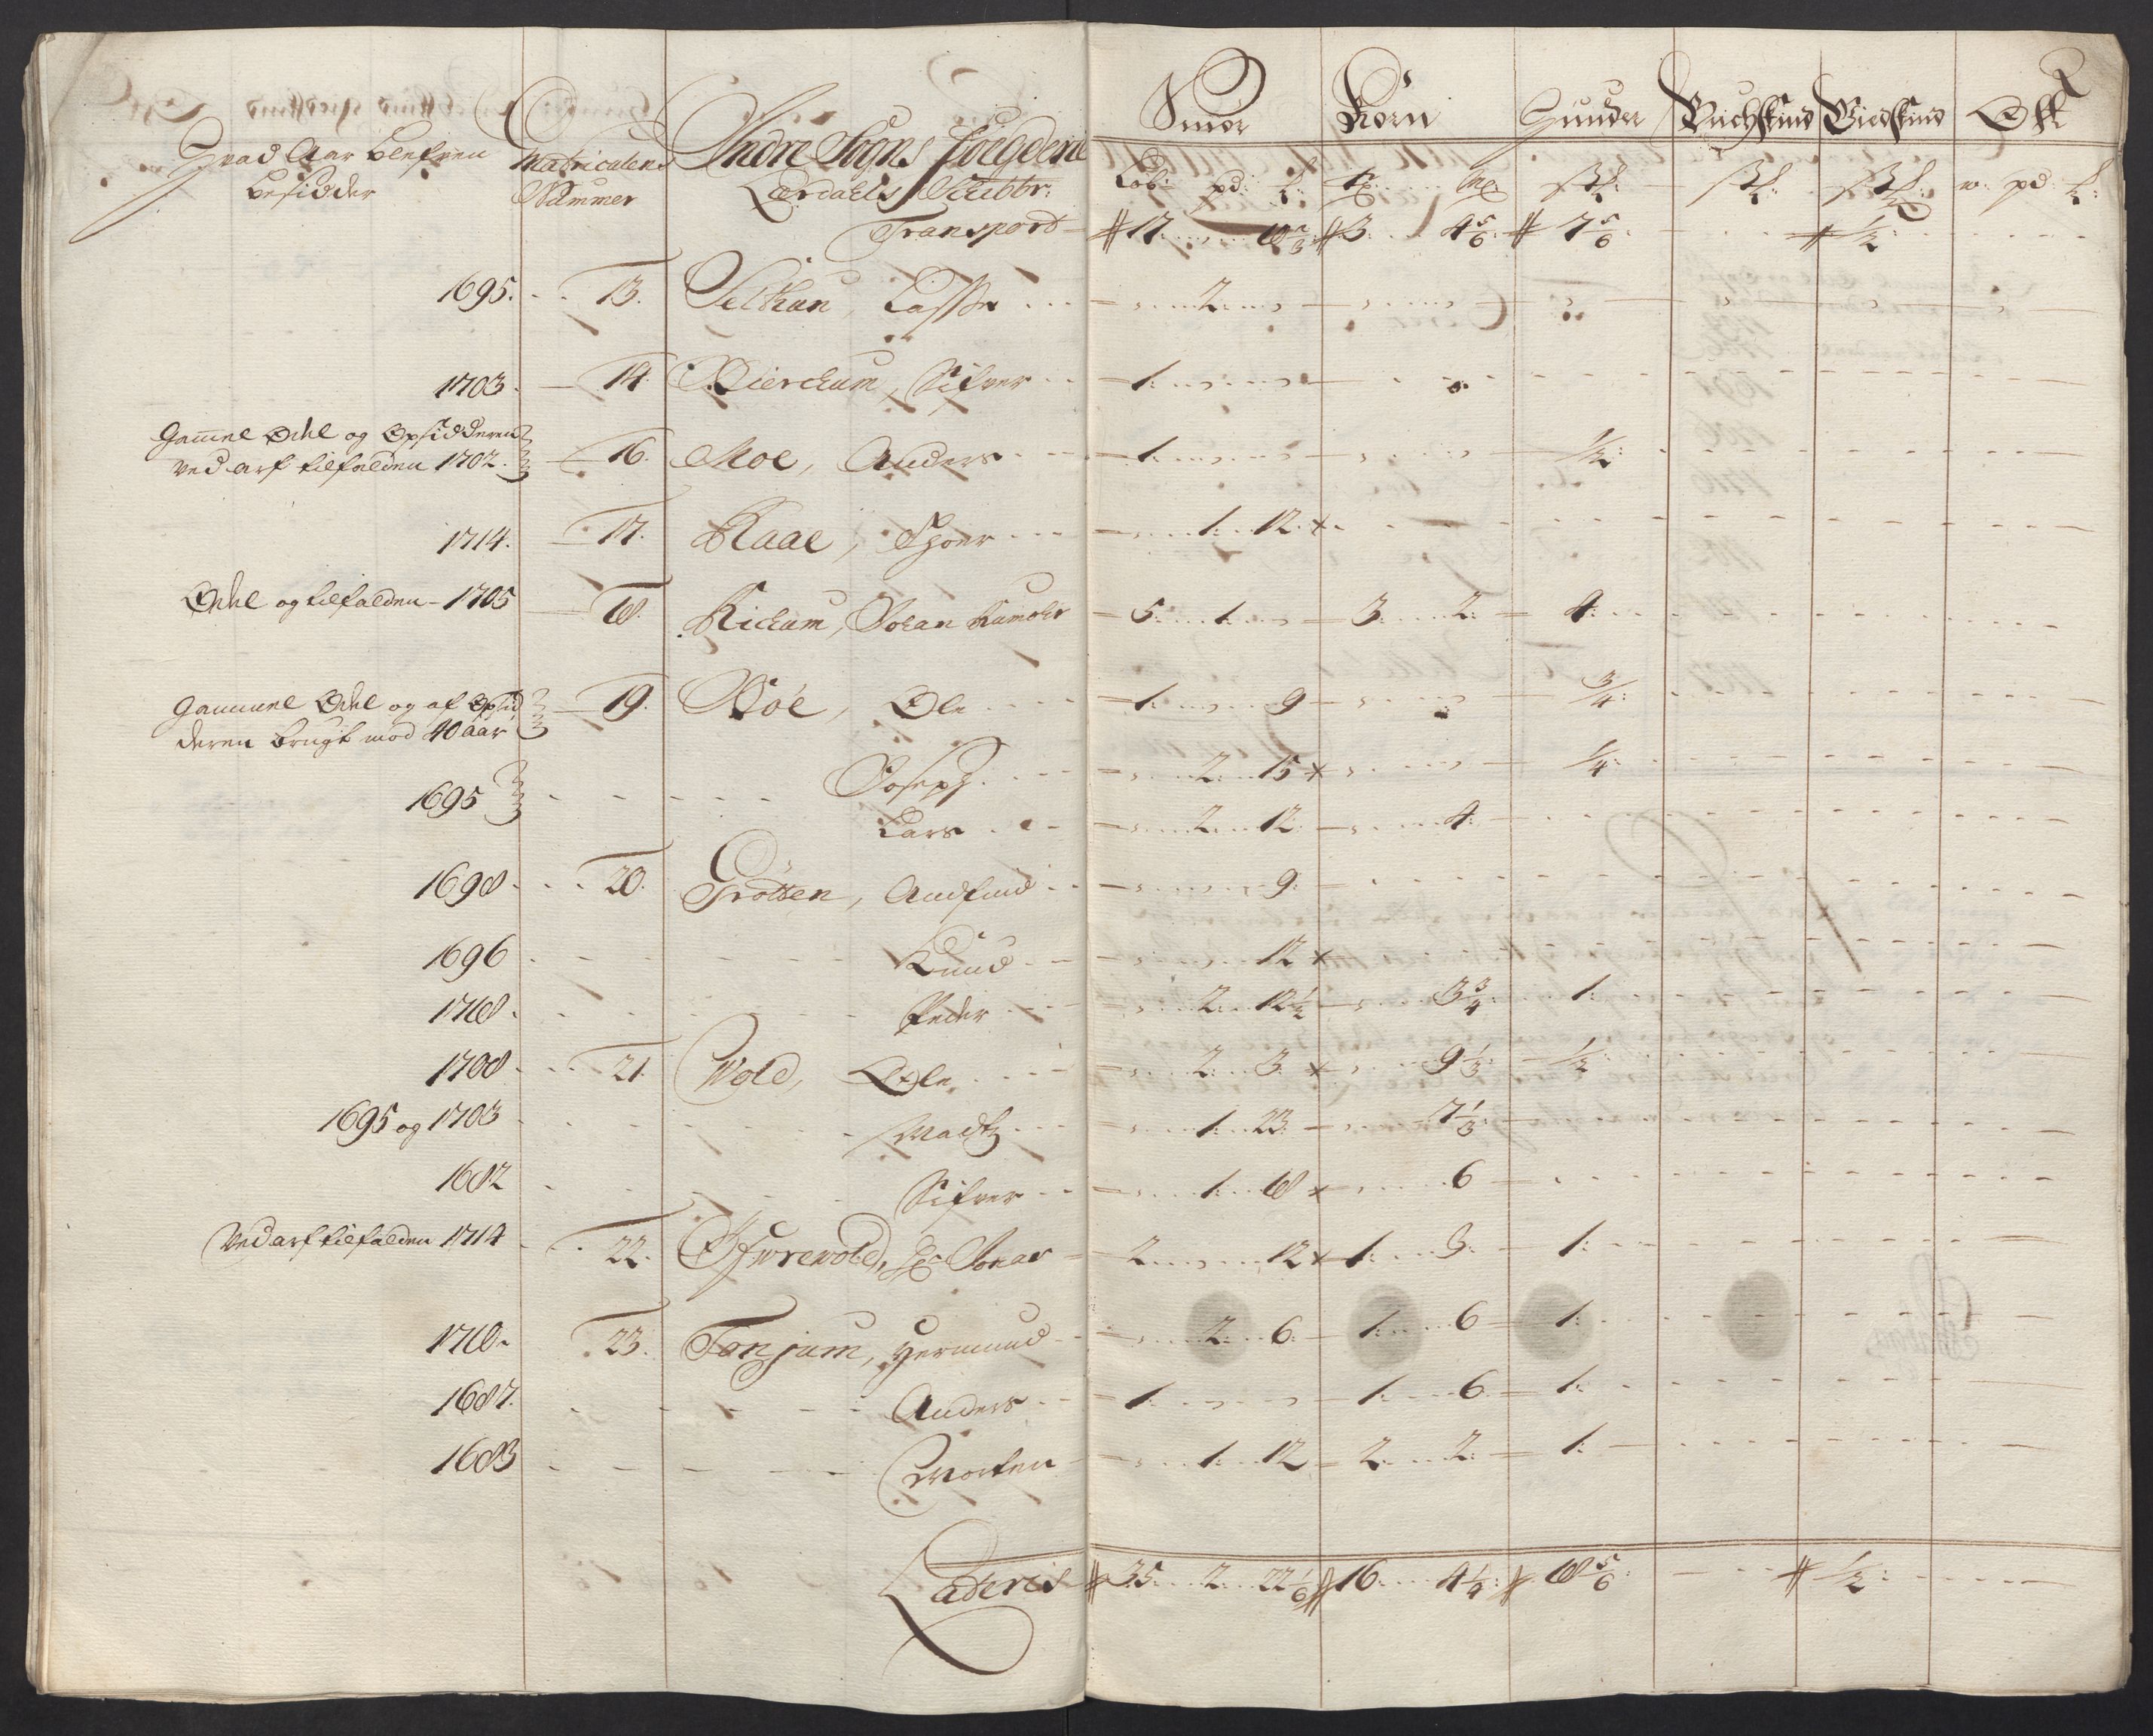 Hvad Aar blefven besidder | Matriculens Nummer | Indre Sogns Foegderie Lærdahls Skibbr: | Smör | Korn | Huuder | Buchskind | Giedskind | Ost
Lób: pd: | w: pd:
Transport # 17 18 2/3 # 3 4 5/6 # 7 5/6 # 1/2:
1695. 13. Selthun, Lasse 2
1703. 14. Bierchum, Sifver 1:
Gammel Odel og Opsidderen ved arf tilfalden 1702. 16. Moe, Anders 1: 1/2:
1714. 17. Raae, 1: 12 x
Odel og tilfalden 1705 18. Kichum, Johan 5: 1: 3: 2: 4:
Gammel Odel og af Opsidderen brugt mod 40 aar 19. Böe, Ole 1: 9 3/4:
1695 Joseph 2: 15 x 1/4:
Lars 2: 12: 4:
1698. 20. Grötten, Andfind 9:
1696 Knud 12 x
1718. Peder 2: 12 1/2 3 3/4: 1:
1708 21. Wold, Ole 2: 3: x 9 1/3: 1/2:
1695 og 1703 Madtz 1: 23: 7 1/3:
1682 Sifver 1: 18 x 6
Ved arf tilfalden 1714 22. Jonas 2: 12 x 1: 3: 1:
1710. 23. Tonjum, Hermund 2: 6: 1: 6 1:
1687. Anders 1: 1: 6 1:
1683 Morten 1: 12 2: 2: 1:
Lateris # 35 2 22 1/6 # 16 4 1/4: # 18 5/6: # 1/2: